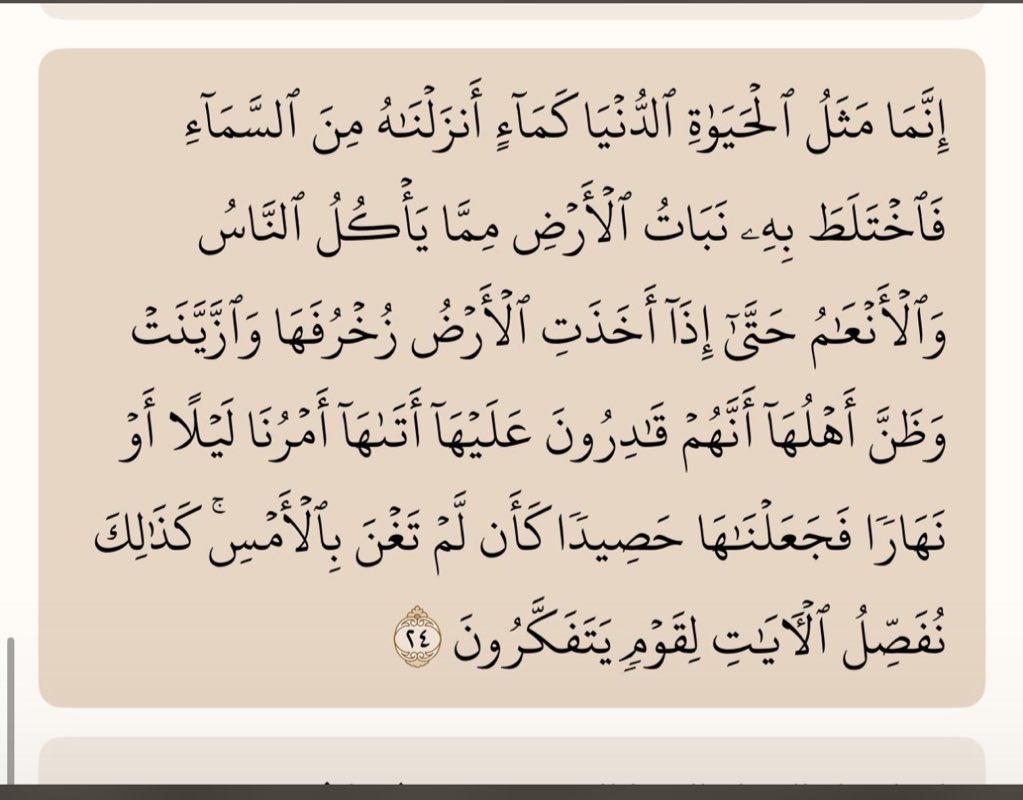 إِنَّمَا مَثَلُ ٱلْحَيَوٰةِ ٱلدُّنْيَا كَمَآءٍ أَنزَلْنَـٰهُ مِنَ ٱلسَّمَآءِ
فَٱخْتَلَطَ بِهِۦ نَبَاتُ ٱلْأَرْضِ مِمَّا يَأْكُلُ ٱلنَّاسُ
وَٱلْأَنْعَـٰمُ حَتَّىٰٓ إِذَآ أَخَذَتِ ٱلْأَرْضُ زُخْرُفَهَا وَٱزَّيَّنَتْ
وَظَنَّ أَهْلُهَآ أَنَّهُمْ قَـٰدِرُونَ عَلَيْهَآ أَتَىٰهَآ أَمْرُنَا لَيْلًا أَوْ
نَهَارًا فَجَعَلْنَـٰهَا حَصِيدًا كَأَن لَّمْ تَغْنَ بِٱلْأَمْسِ ۚ كَذَٰلِكَ
نُفَصِّلُ ٱلْـَٔايَـٰتِ لِقَوْمٍ يَتَفَكَّرُونَ ٢٤